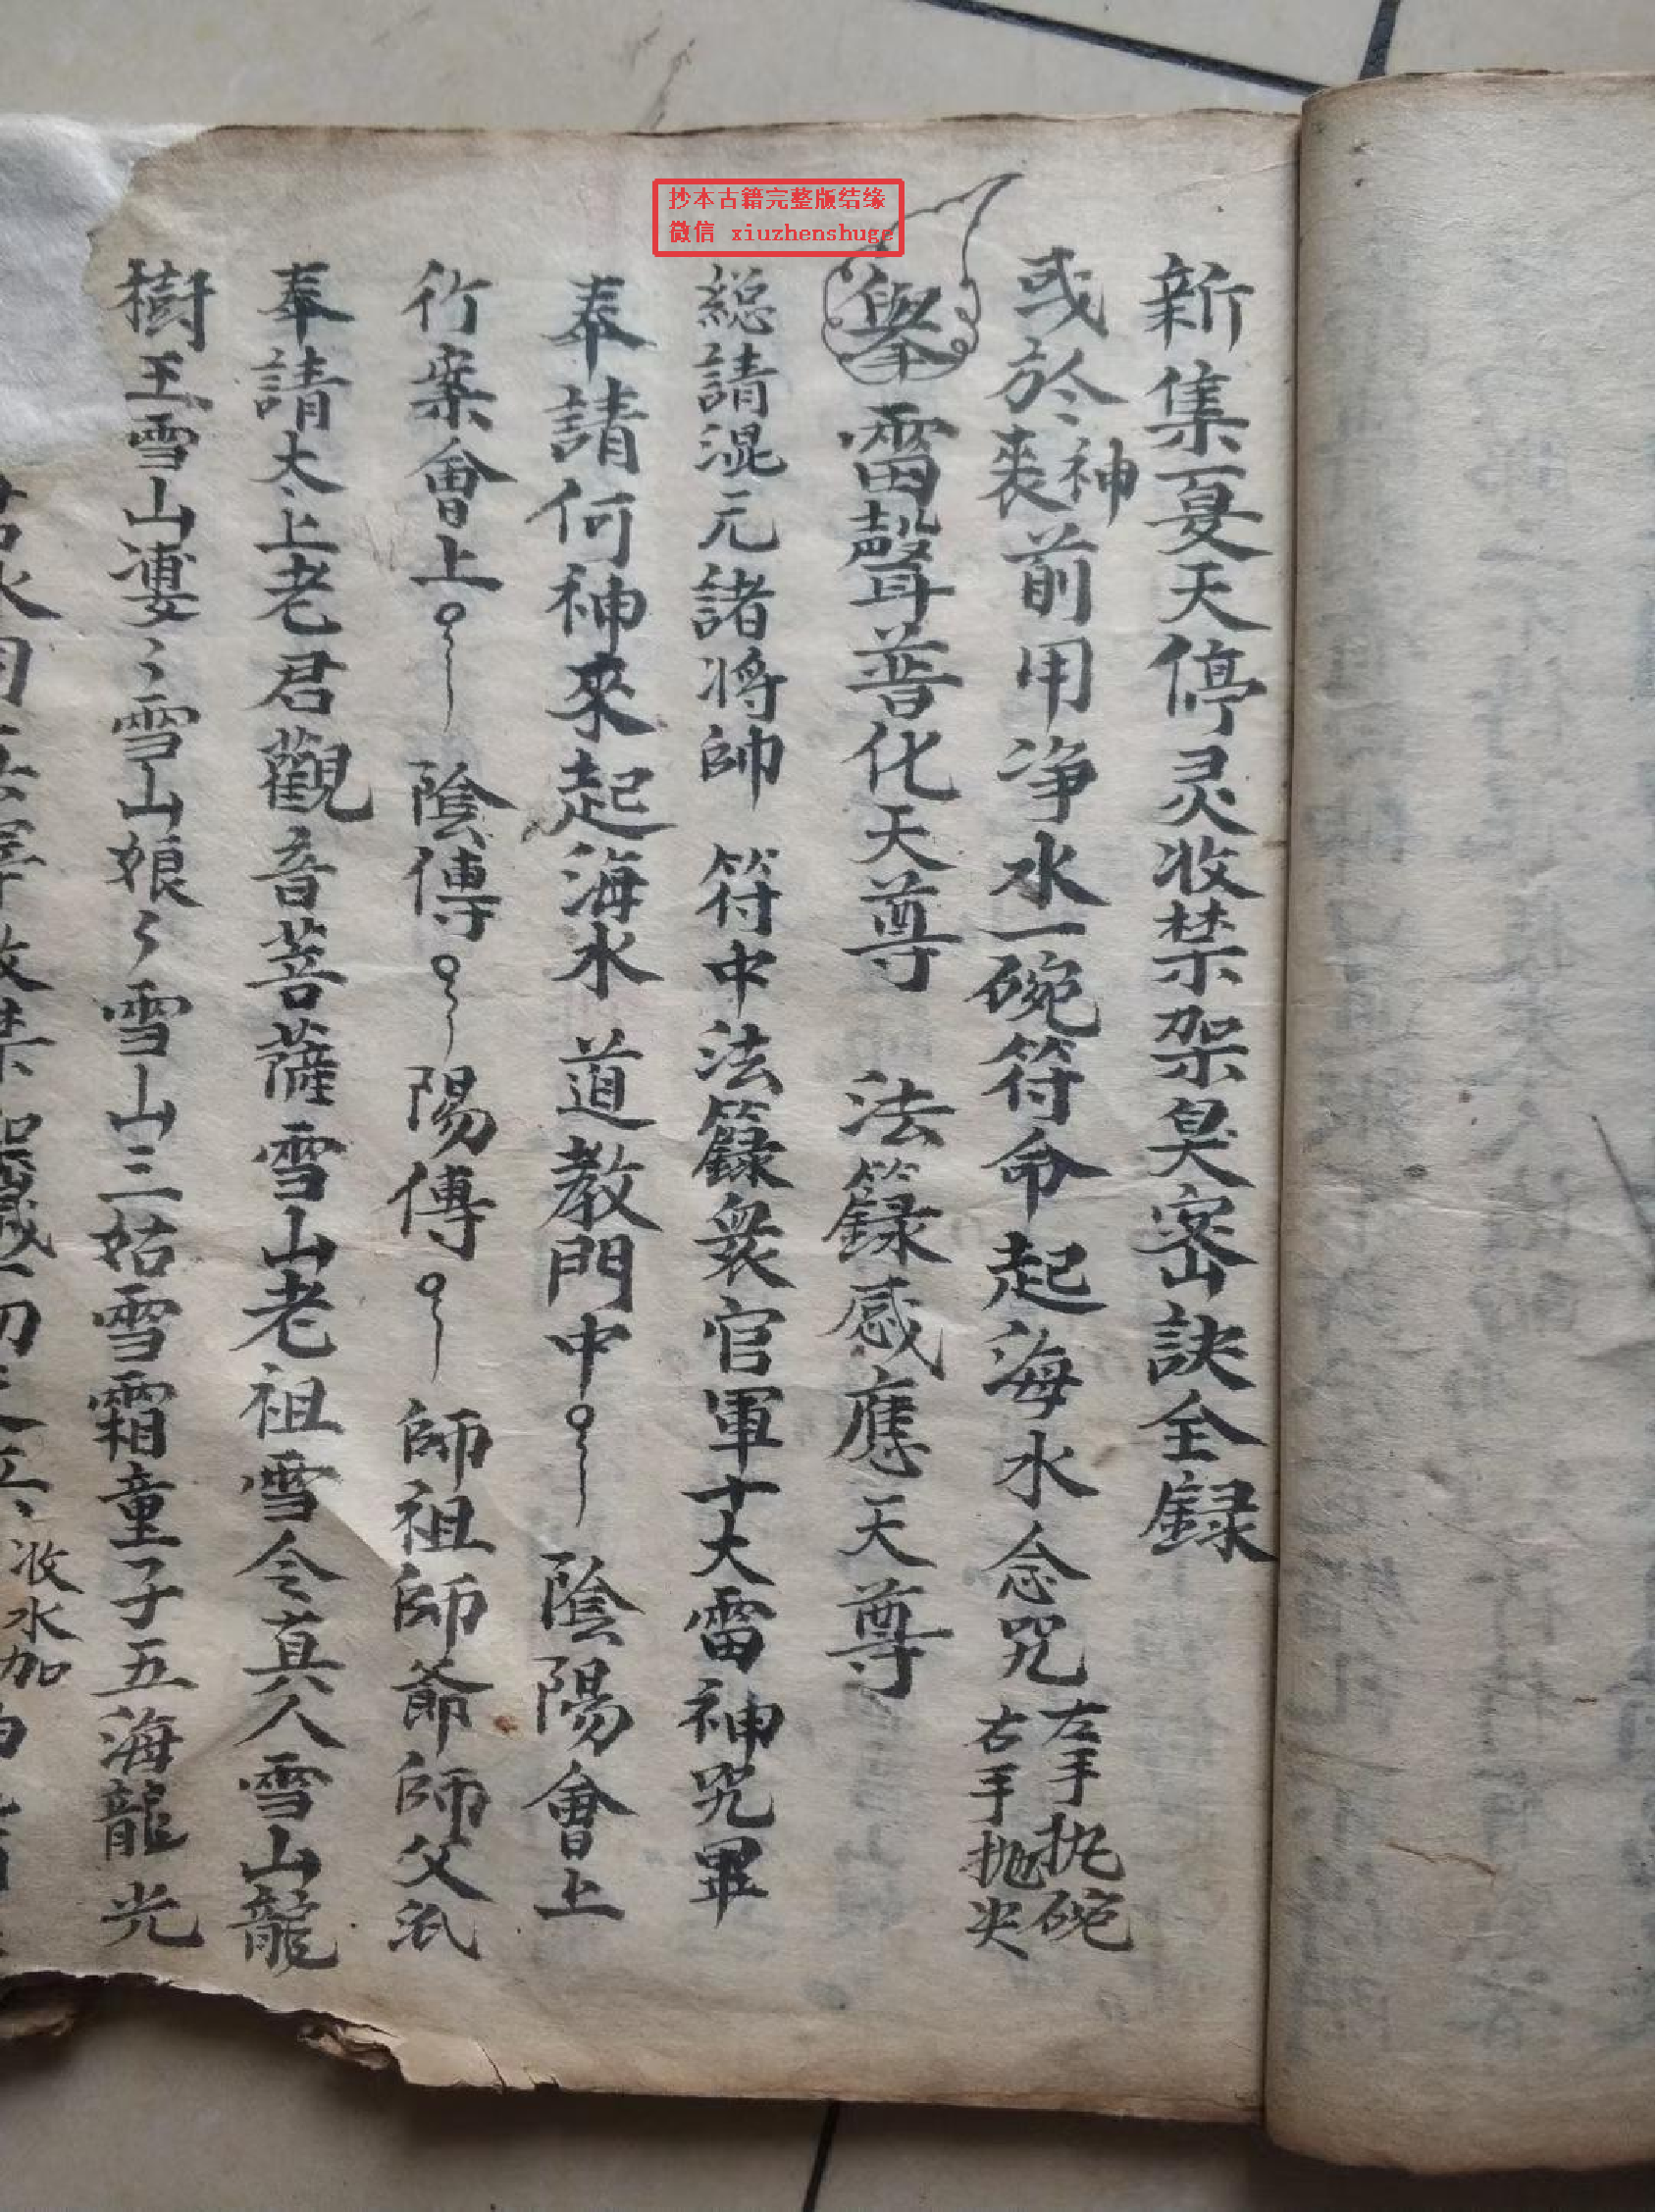 抄本古籍完整版结缘
微信 xiuzhenshuge
新集夏天停灵收禁架臭密訣全録
或於神喪前用净水一碗符命起海水念咒左手执碗右手抛尖
舉雷聲普化天尊 法籙感應天尊
総請混元諸将帥 符中法籙衆官軍十大雷神咒畢
奉請何神來起海水 道教門中 陰陽會上
行案會上 陰傳 陽傳 師祖師爺師父派
奉請太上老君觀音菩薩雪山老祖雪令真人雪山龍
樹王雪山婆〻雪山娘〻雪山三姑雪霜童子五海龍光
收水加